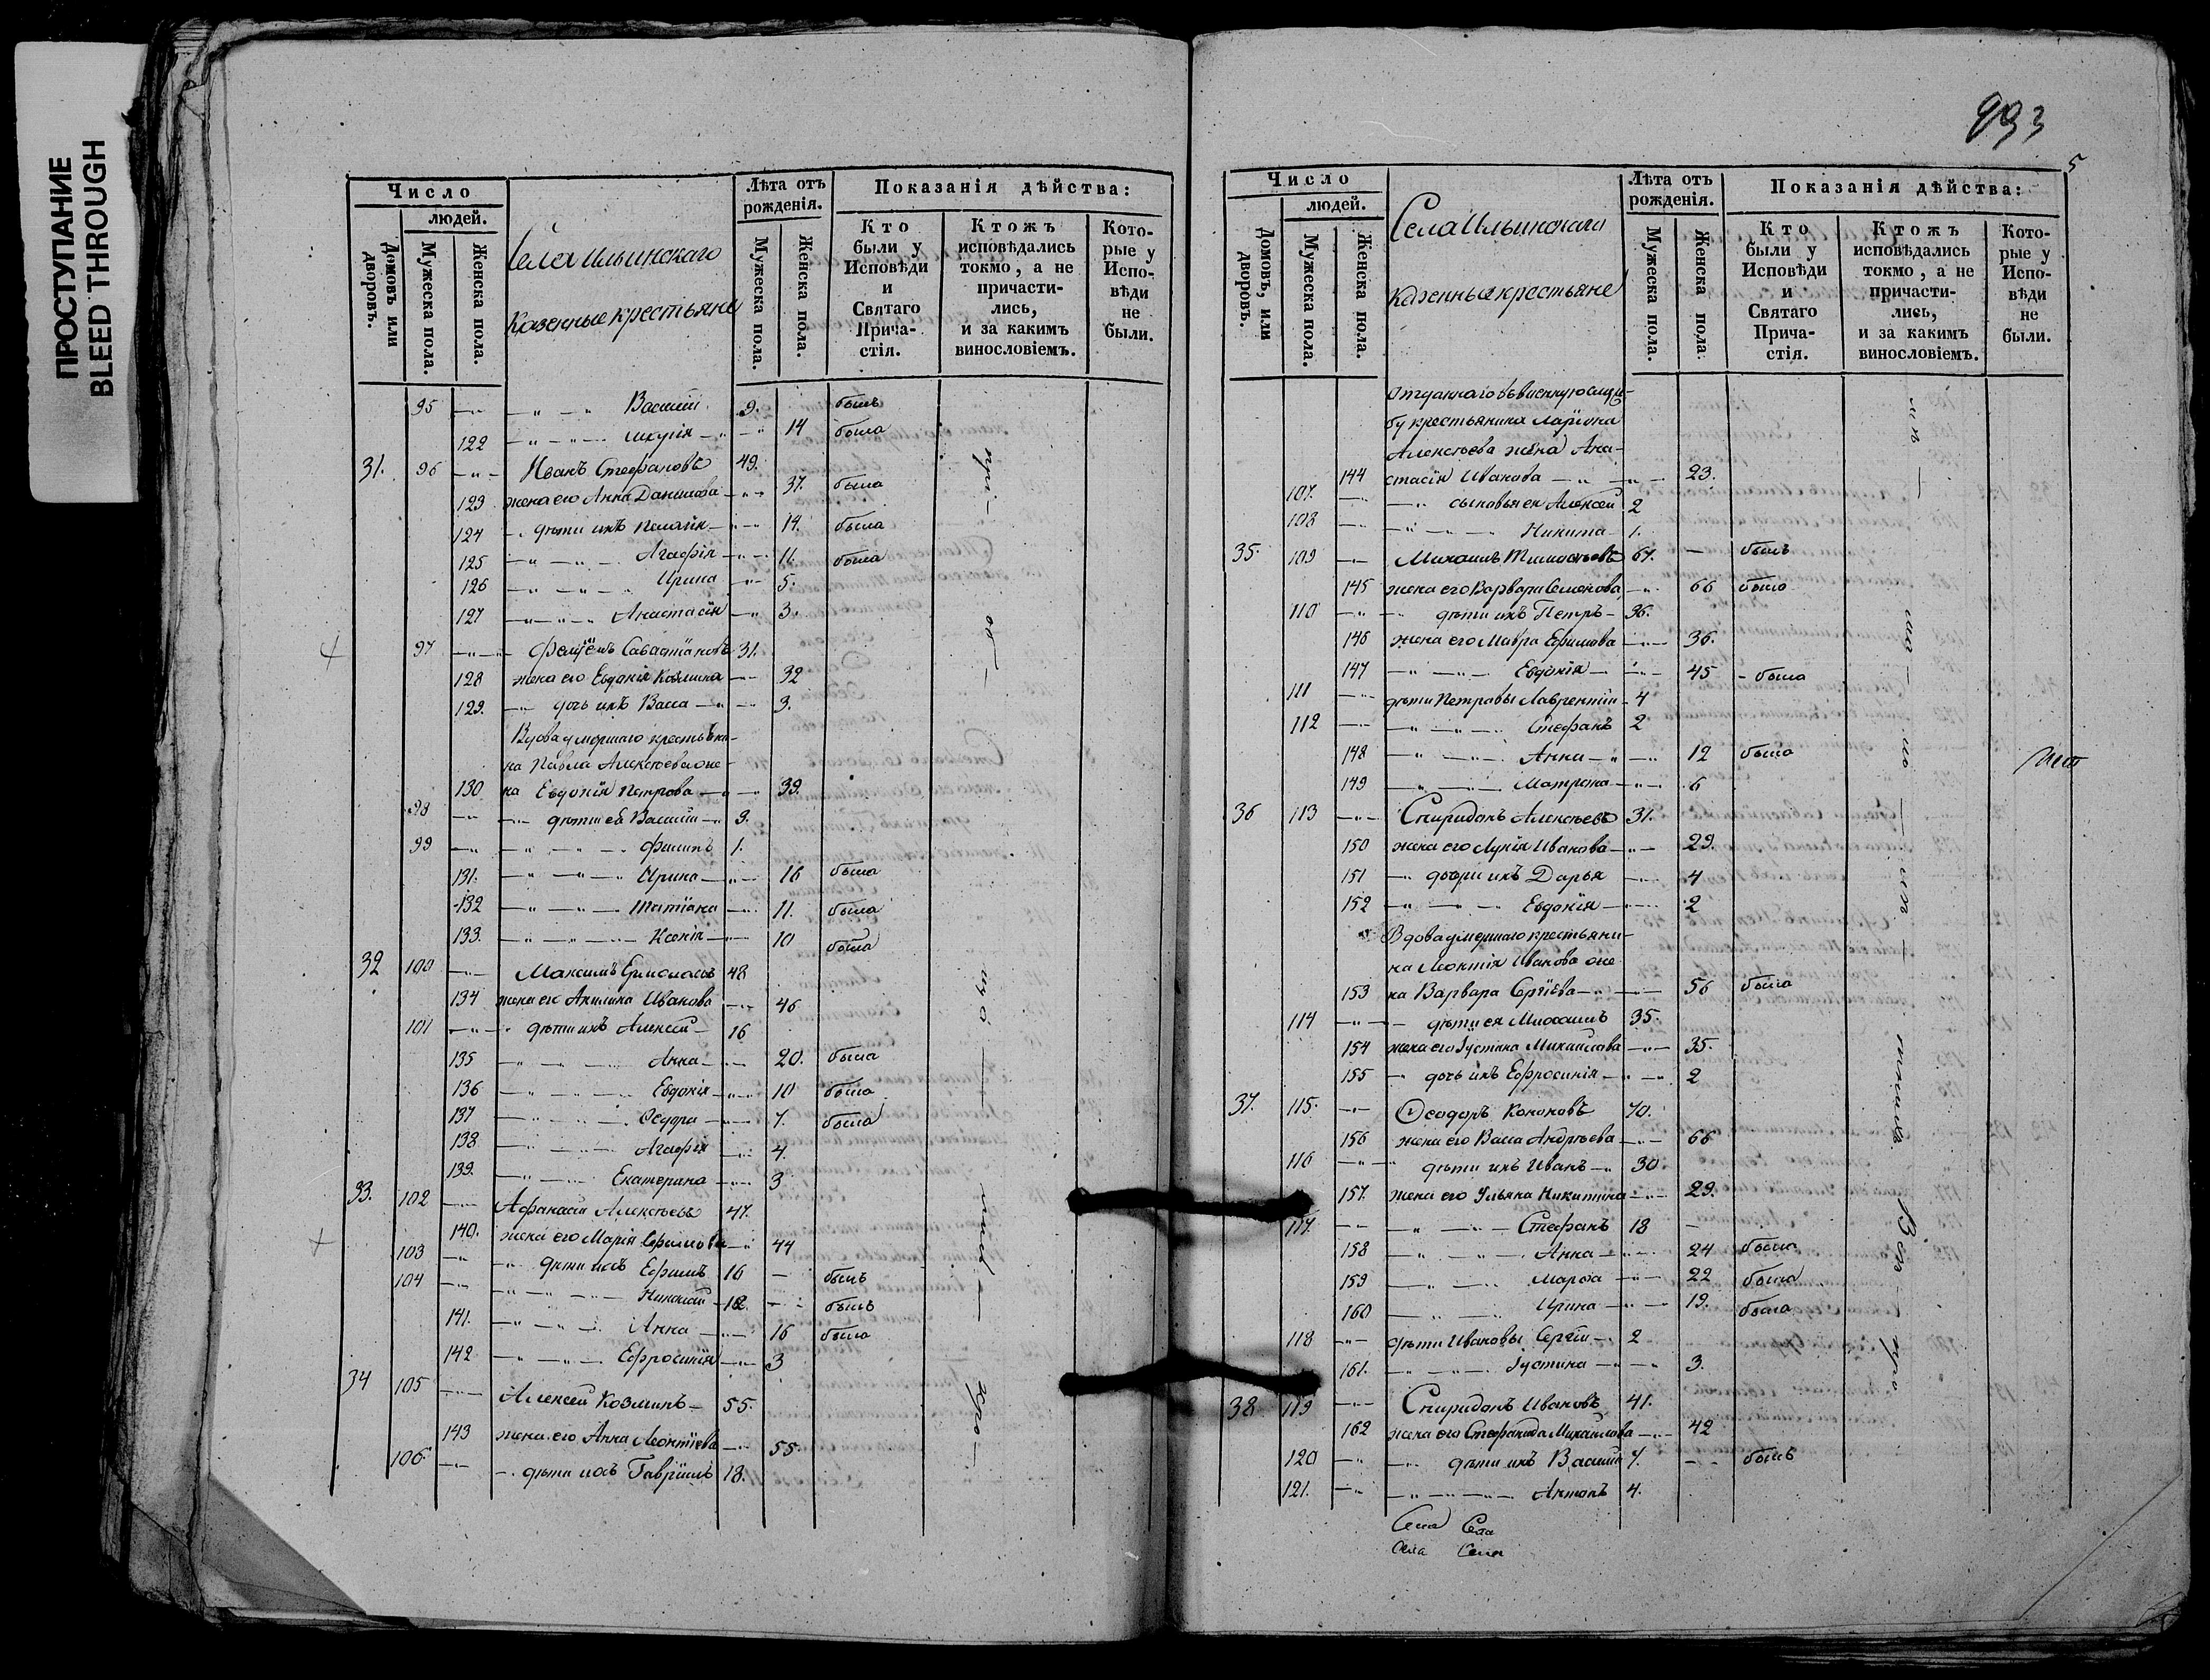 ПРОСТУПАНИЕ
BLEED THROUGH
Число
людей.
Домовъ или дворовъ.
Мужеска пола.
Женска пола.
Села Ильинскаго
Казенные крестьяне
Лѣта отъ рожденія.
Мужеска пола.
Женска пола.
Показанія дѣйства:
Кто были у Исповѣди и Святаго Прича-стія.
Ктожъ исповѣдались токмо, а не причасти-лись, и за какимъ винословіемъ.
Кото-рые у Испо-вѣди не были.
95 Василій 9. былъ
122 14 была
31. 96 Иванъ Стефановъ 49.
123 жена его Анна Данилова 37. была
124 дѣти ихъ 14. была
125 Агафія 11. была
126 Ирина 5.
127 Анастасія 3.
97 Савастіановъ 31.
128 жена его Евдокія Козмина 32
129. дочь ихъ Васса 3.
Вдова умершаго крестьяни-
на Павла Алексѣева оне-
130 на Евдокія Петрова 39.
98 дѣти ея Василій 9.
99 Филипъ 1.
131. Ирина 16 была
132 Татіана 11. была
133. Ксенія 10 была
32 100 Максимъ 48
134 жена его Акилина Иванова 46
101 дѣти ихъ Алексѣй 16
135 Анна 20. была
136 Евдокія 10 была
137 Ѳедора 7. была
138 Агафія 4.
139. Екатерина 3
33. 102 Афанасій Алексѣевъ 47.
140. жена его Марія Ефимова 44
103 дѣти ихъ Ефимъ 16 былъ
104 Николай 12. былъ
141. Анна 16 была
142 Ефросинія 3
34 105 Алексѣй Козминъ 55.
143 жена его Анна Леонтіева 55.
106 дѣти ихъ Гавріилъ 18.
993
5
Число
людей.
Домовъ, или дворовъ.
Мужеска пола.
Женска пола.
Села Ильинскаго
казенные крестьяне
Лѣта отъ рожденія.
Мужеска пола.
Женска пола.
Показанія дѣйства:
Кто были у Исповѣди и Святаго Прича-стія.
Ктожъ исповѣдались токмо, а не причасти-лись, и за какимъ винословіемъ.
Кото-рые у Испо-вѣди не были.
Отданнаго въ военную служ-
бу крестьянина Ларіона
Алексѣева жена Ана-
144 стасія Иванова 23.
107. сыновья ея Алексѣй 2
108 Никита 1.
35. 109 Михаилъ 67. былъ
145 жена его Варвара Семенова 66 была
110 дѣти ихъ Петръ 36.
146 жена его Мавра Ефимова 36.
147 Евдокія 45 была
111 дѣти Петровы Лаврентій 4
112 Стефанъ 2
148 Анна 12 была
149 Матрона 6
36 113 Спиридонъ Алексѣевъ 31.
150 жена его Лукія Иванова 29.
151 дочери ихъ Дарья 4
152 Евдокія 2
Вдова умершаго крестьяни-
на Леонтія Иванова оне-
153 на Варвара Сергіева 56 была
114 дѣти ея Михаилъ 35.
154 жена его Іустина Михаилова 35.
155 дочь ихъ Ефросинія 2
37. 115. Ѳеодоръ Кононовъ 70.
156 жена его Васса Андрѣева 66
116 дѣти ихъ Иванъ 30.
157. жена его Ульяна Никитина 29.
117. Стефанъ 18
158 Анна 24 была
159 Марѳа 22 была
160 Ирина 19. была
118 дѣти Ивановы Сергій 2
161. Іустина 3.
38 119 Спиридонъ Ивановъ 41.
162 жена его Стефанида Михаилова 42
120 дѣти ихъ Василій 7. былъ
121. Антонъ 4.
Села Села
Села Села